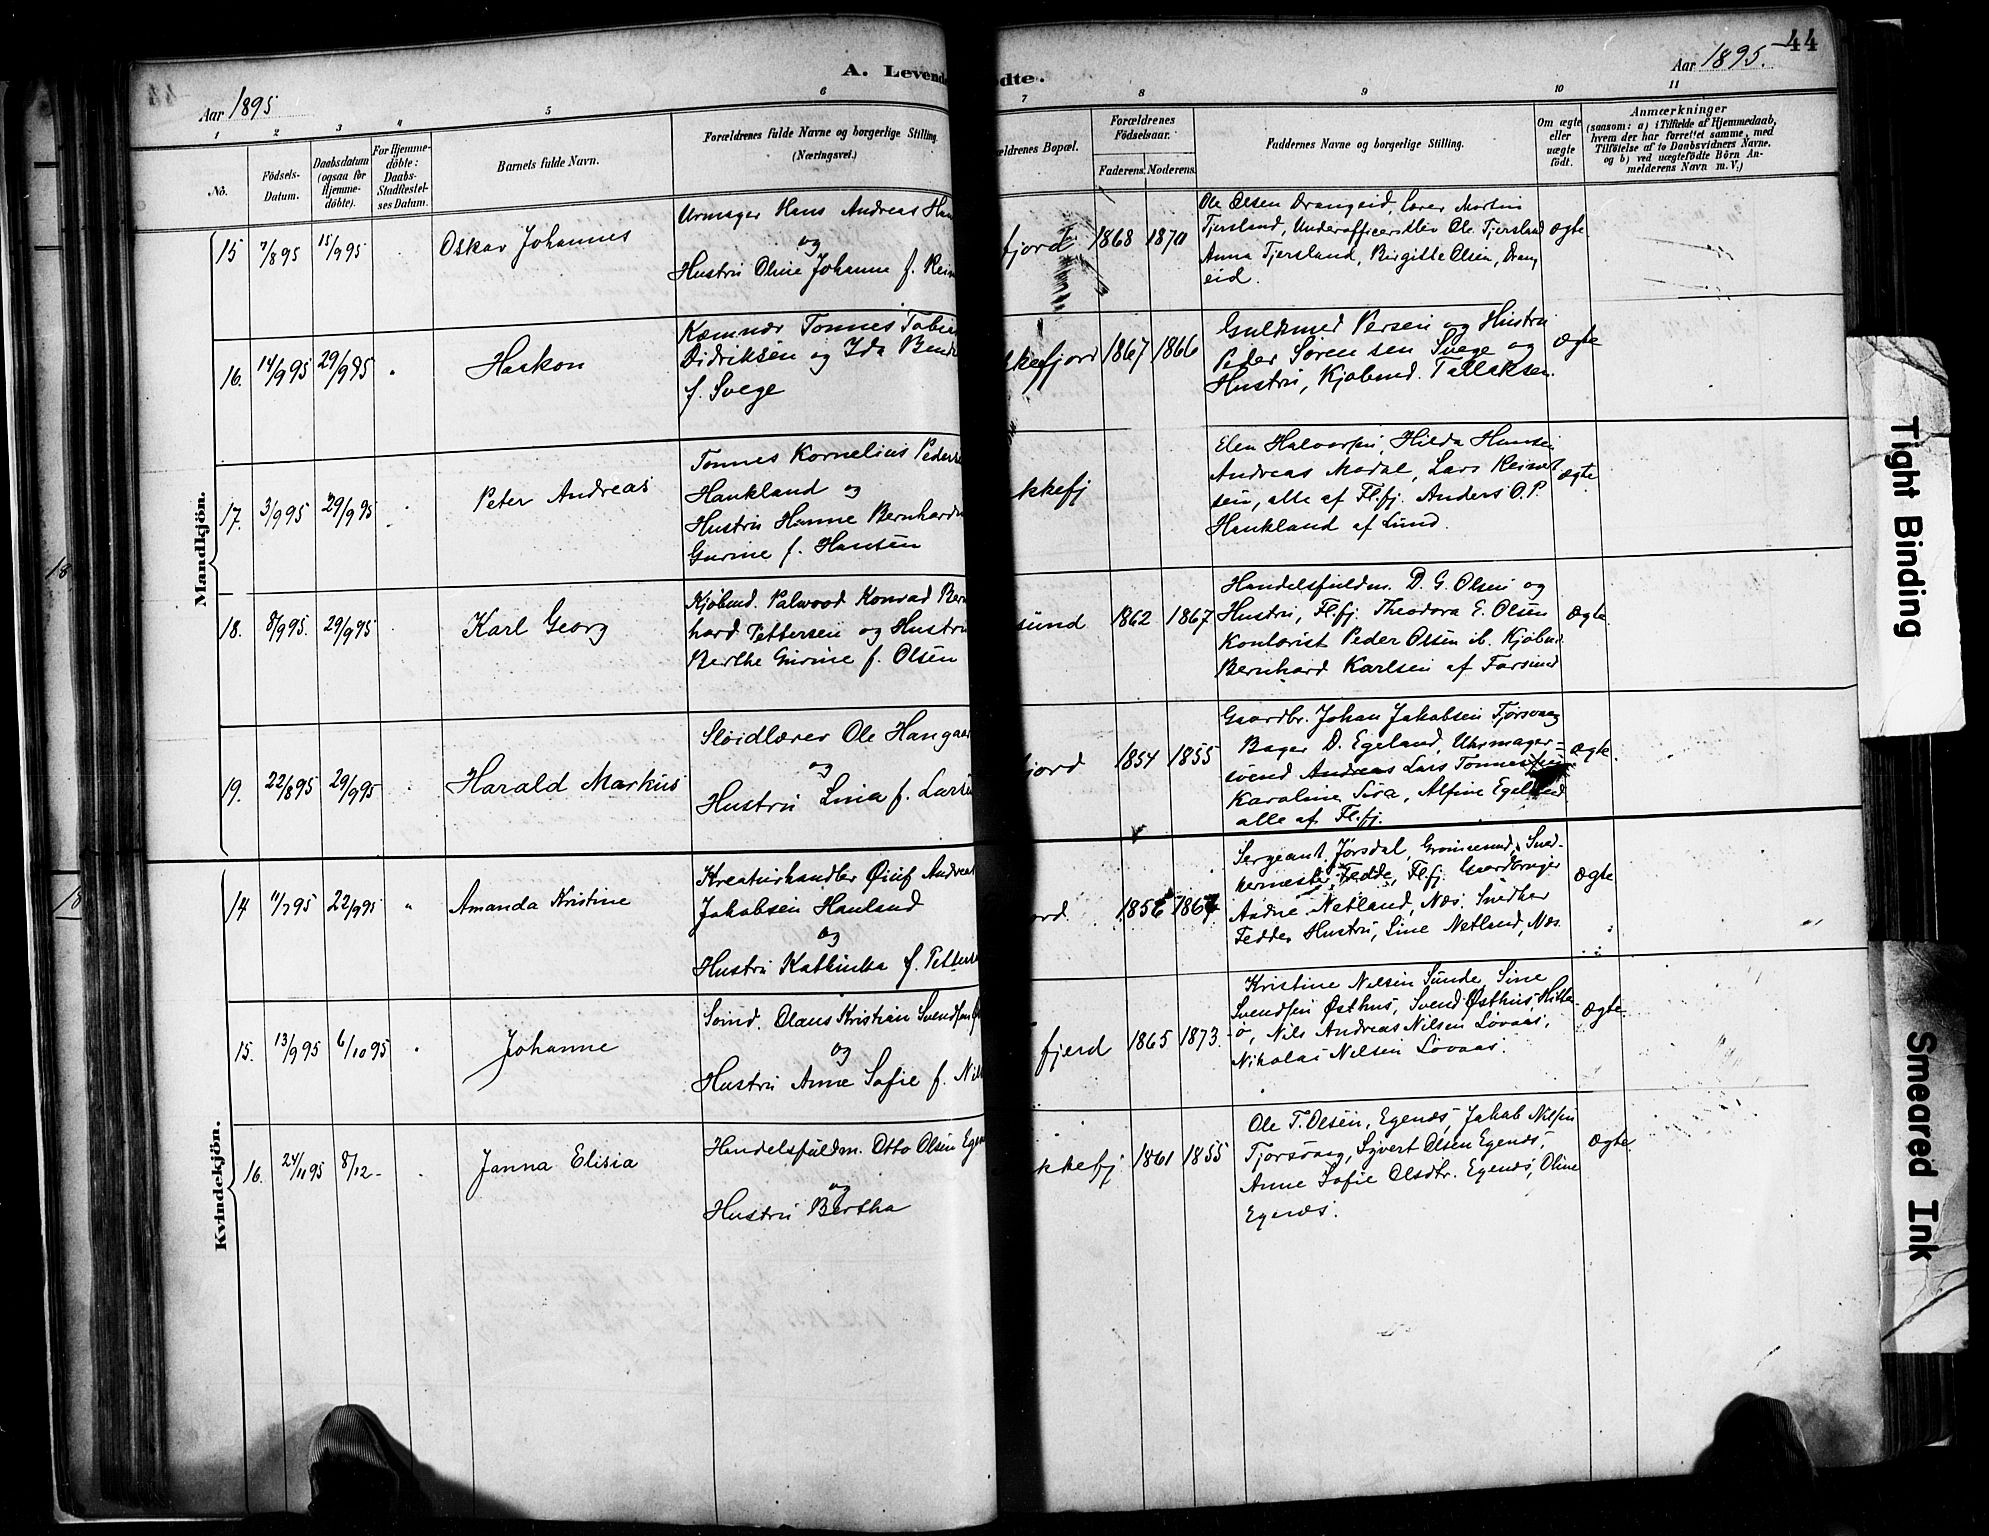 44
A. Levende
ødte.
Aar 1895
Aar 1895.
1 2 3 4 5 6 7 8 9 10 11
No.
Födsels-
Datum.
Daabsdatum
(ogsaa for
Hjemme-
döbte).
For Hjemme-
döbte:
Daabs-
Stadfæstel-
ses Datum.
Barnets fulde Navn.
Forældrenes fulde Navne og borgerlige Stilling.
(Næringsvei.)
ældrenes Bopæl.
Forældrenes
Födselsaar.
Faderens. Moderens.
Faddernes Navne og borgerlige Stilling.
Om ægte
eller
uægte
födt.
Anmærkninger
(saasom: a) i Tilfælde af Hjemmedaab,
hvem der har forrettet samme, med
Tilföielse af to Daabsvidners Navne.
og b) ved uægtefödte Börn An-
melderens Navn m. V.)
Mandkjön.
15 7/8 95 15/9 95
Oskar Johannes
Urmager Hans Andreas Han
og
Hustru Oline Johanne f. Rein
fjord 1868 1870
Ole Olsen Drangeid, Lærer Martin
Tjersland, Underofficerselev Ole Tjersland
Anna Tjersland, Birgitte Olsen, Drang
eid.
ægte
16. 14/9 95 29/9 95
Haakon
Kæmnær Tønnes Tobia
Didriksen og Ida Bendi
f. Svege
kkefjord 1867 1866
Guldsmed Persen og Hustru
Peder Sørensen Svege og
Hustru, Kjøbmd. Tallaksen.
ægte
17. 3/9 95 29/9 95
Peter Andreas
Tønnes Kornelius Peders
Haukland og
Hustru Hanne Bernhardi
Gurine f. Hansen
kkefj
Elen Halvorsen, Hilda Hansen
Andreas Modal, Lars Reinert
sen, alle af Fl.fj. Anders O.P.
Haukland af Lund.
ægte
18. 8/9 95. 29/9 95
Karl Georg
Kjøbmd. Palwood Konrad Bern
hard Pettersen og Hustru
Berthe Gurine f. Olsen
sund 1862 1867
Handelsfuldm. D. G. Olsen og
Hustru, Fl.fj. Theodora E. Olsen
Kontorist Peder Olsen ib. Kjøbm.
Bernhard Karlsen af Farsund
ægte.
19. 22/8 95 29/9 95
Harald Markus
Sløidlærer Ole Haugaa
og
Hustru Lina f. Larse
fjord 1854 1855
Gaardbr. Johan Jakobsen Tjørsvaag
Bager D. Egeland, Uhrmager-
svend Andreas Lars Tønnessen
Karoline Sira, Alfine Egeland
alle af Fl.fj.
ægte.
Kvindekjön.
14 11/7 95 22/9 95 "
Amanda Kristine
Kreaturhandler Øiuf Andreas
Jakobsen Hauland
og
Hustru Kathinka f. Petterse
ord 1856 1867
Sergeant Jørsdal, Sned-
kermester Fedde, Fl.fj. Gaardbruger
Aadne Netland, Næs. Snedker
Feddes Hustru, Line Netland, Næs.
ægte
15. 13/9 95 6/10 95
Johanne
Sømd. Olaus Kristian Svendsen Øst
og
Hustru Anne Sofie f. Nils
fjord 1865 1873.
Kristine Nilsen Sunde, Sine
Svendsen Østhus, Svend Østhus, Hitter
ø, Nils Andreas Nilsen Løvaas,
Nikolai Nilsen Løvaas.
ægte
16. 24/11 95 8/12 -
Janna Elisia
Handelsfuldm. Otto Olsen Egen
og
Hustru Bertha
kkefj 1861 1855
Ole T. Olsen, Egenæs, Jakob Nilsen
Tjørsvaag, Syvert Olsen Egenæs,
Anne Sofie Olsdtr. Egenæs, Oline
Egenæs.
ægte.
18
18
Tight Binding
Smeared Ink